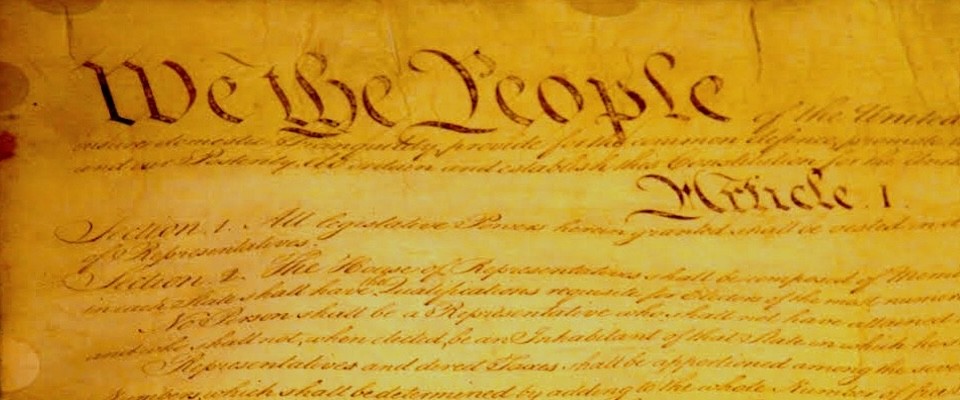 We the People of the United
insure domestic Tranquility, provide for the common defence, promote
and our Posterity, do ordain and establish this Constitution for the United
Article. I.
Section. 1. All legislative Powers herein granted shall be vested in a
of Representatives.
Section. 2. The House of Representatives shall be composed of Mem
in each State shall have the Qualifications requisite for Electors of the most numer
No Person shall be a Representative who shall not have attained
and who shall not, when elected, be an Inhabitant of that State in which he s
Representatives and direct Taxes shall be apportioned among the seve
Numbers, which shall be determined by adding to the whole Number of free